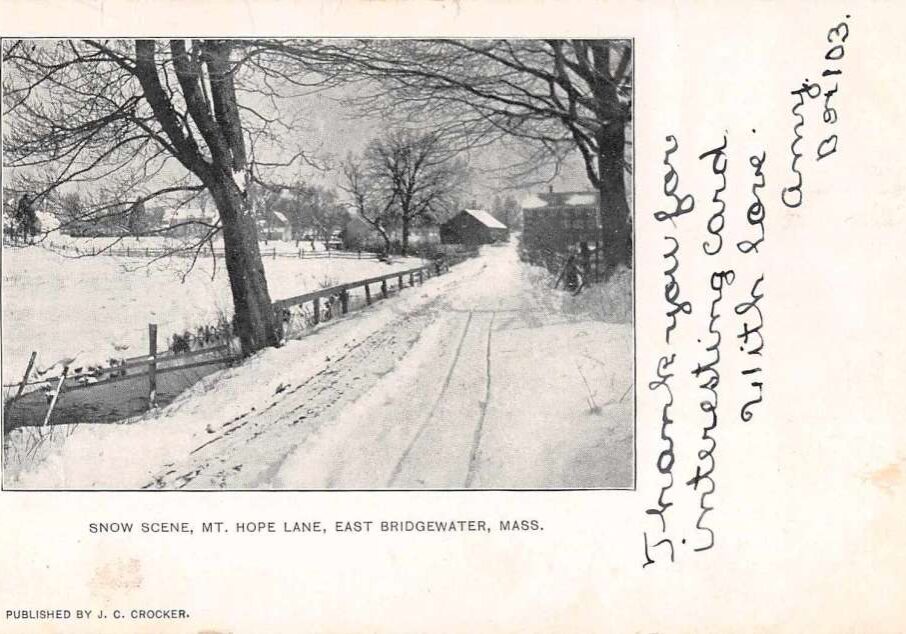 SNOW SCENE, MT. HOPE LANE, EAST BRIDGEWATER, MASS.
PUBLISHED BY J. C. CROCKER.
Thank you for
interesting card
With love.
Amy.
Box 103.